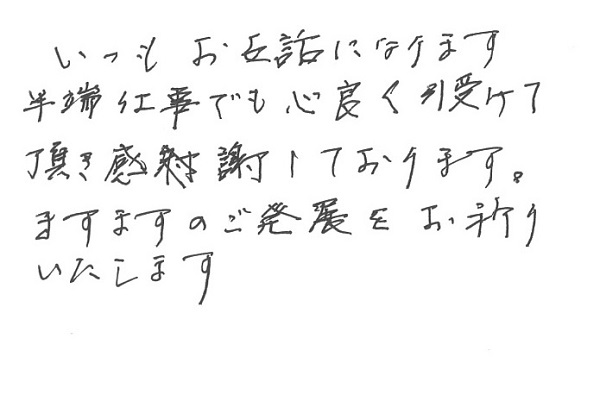 いつもお世話になります
半端仕事でも心良く引受けて
頂き感謝しております。
ますますのご発展をお祈り
いたします